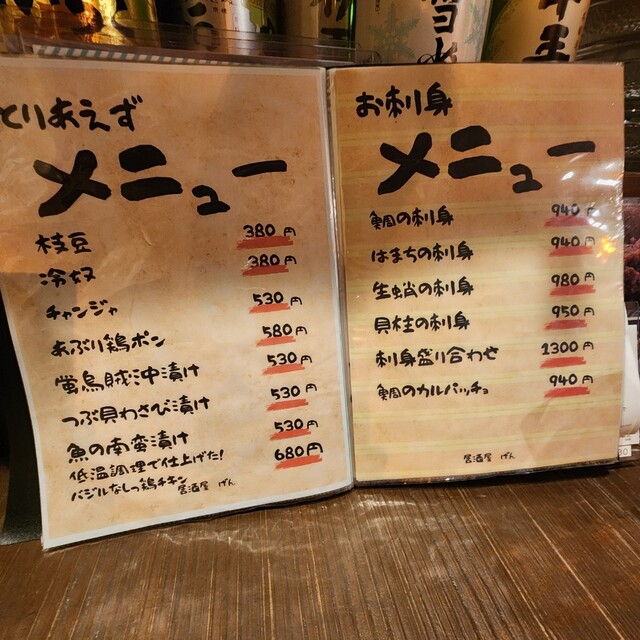 とりあえず
メニュー
枝豆 380円
冷奴 380円
チャンジャ 530円
あぶり鶏ポン 580円
蛍烏賊沖漬け 530円
つぶ貝わさび漬け 530円
魚の南蛮漬け 530円
低温調理で仕上げた! 680円
バジルなしっ鶏チキン
居酒屋 げん
お刺身
メニュー
鯛の刺身 940円
はまちの刺身 940円
生蛸の刺身 980円
貝柱の刺身 950円
刺身盛り合わせ 1300円
鯛のカルパッチョ 940円
居酒屋 げん
雪水